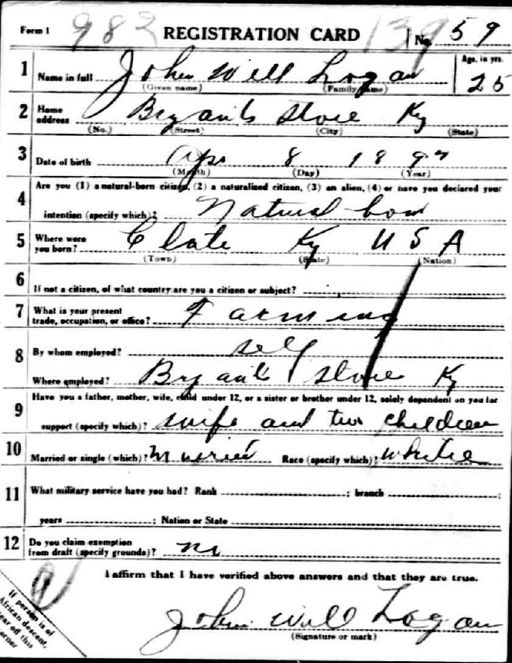 Form 1 982 REGISTRATION CARD 139 No. 59
1 Name in full John Will Logan Age, in yrs. 25
(Given name) (Family name)
2 Home address Bryants Store Ky
(No.) (Street) (City) (State)
3 Date of birth Apr 8 1892
(Month) (Day) (Year)
4 Are you (1) a natural-born citizen, (2) a naturalized citizen, (3) an alien, (4) or have you declared your
intention (specify which)? Natural born
5 Where were you born? Clate Ky U S A
(Town) (State) (Nation)
6 If not a citizen, of what country are you a citizen or subject?
7 What is your present trade, occupation, or office? Farming
8 By whom employed? self
Where employed? Bryants Store Ky
9 Have you a father, mother, wife, child under 12, or a sister or brother under 12, solely dependent on you for
support (specify which)? wife and two children
10 Married or single (which)? Married Race (specify which)? White
11 What military service have you had? Rank ; branch
years ; Nation or State
12 Do you claim exemption from draft (specify grounds)? no
I affirm that I have verified above answers and that they are true.
John Will Logan
(Signature or mark)
If person is of
African descent,
tear off this
corner